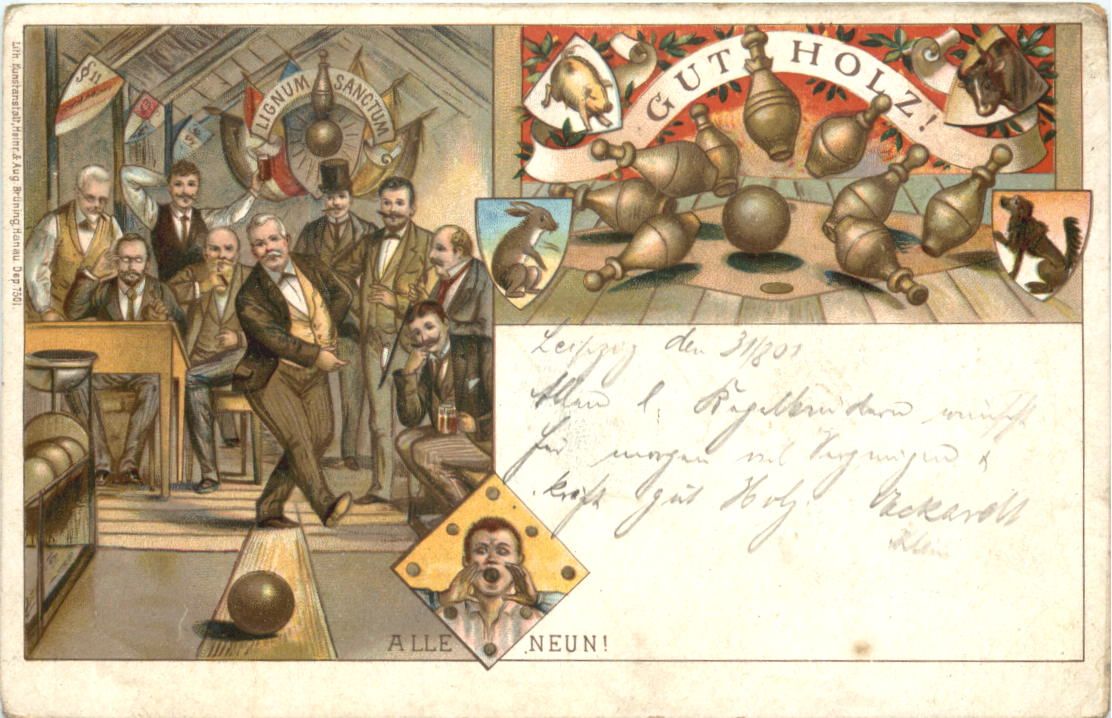 Lith. Kunstanstalt, Heinr. & Aug. Brüning, Hanau Dep. 7501.
§ 11
LIGNUM SANCTUM
GUT HOLZ!
Leipzig den 31/8 01
Allen l. Kegelbrüdern wünscht
für morgen viel Vergnügen &
kräft gut Holz. Eckardt
ALLE NEUN!